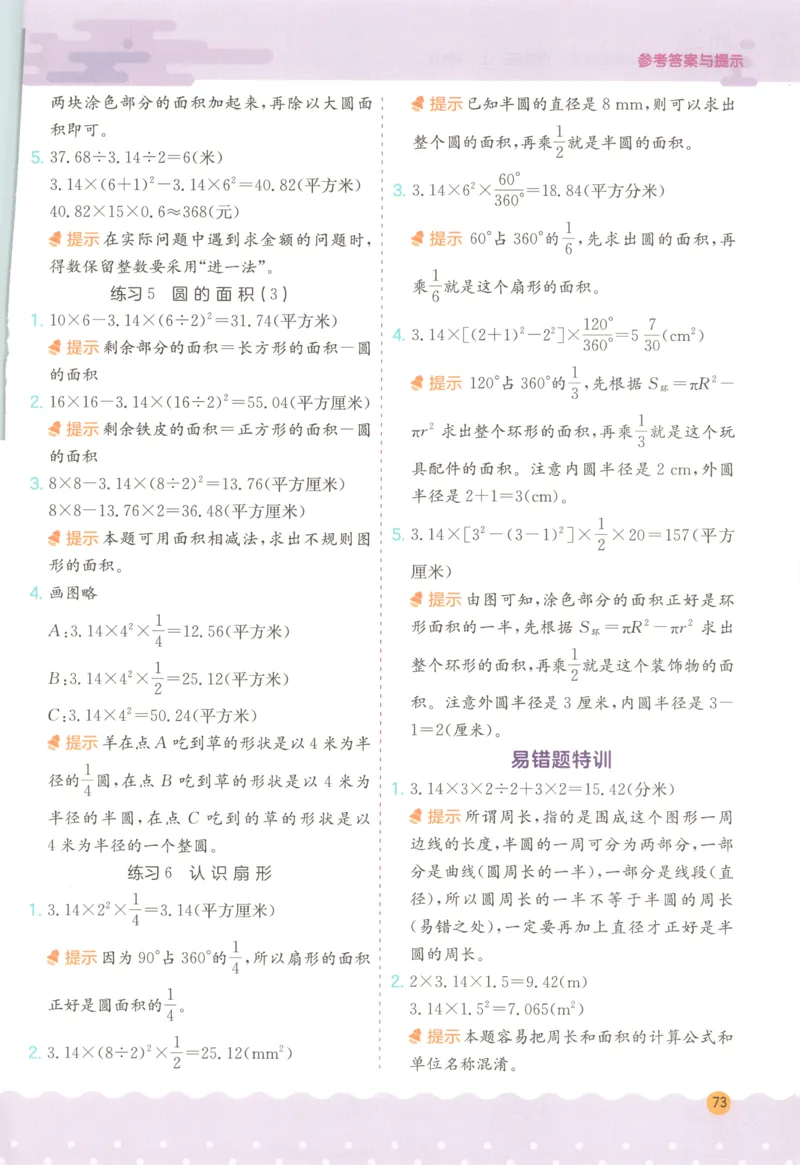 参考答案与提示
两块涂色部分的面积加起来,再除以大圆面
积即可。
5. 37.68÷3.14÷2=6(米)
3.14×(6+1)²-3.14×6²=40.82(平方米)
40.82×15×0.6≈368(元)
提示 在实际问题中遇到求金额的问题时,
得数保留整数要采用“进一法”。
练习5 圆的面积(3)
1. 10×6-3.14×(6÷2)²=31.74(平方米)
提示 剩余部分的面积=长方形的面积-圆
的面积
2. 16×16-3.14×(16÷2)²=55.04(平方厘米)
提示 剩余铁皮的面积=正方形的面积-圆
的面积
3. 8×8-3.14×(8÷2)²=13.76(平方厘米)
8×8-13.76×2=36.48(平方厘米)
提示 本题可用面积相减法,求出不规则图
形的面积。
4. 画图略
A:3.14×4²×1/4=12.56(平方米)
B:3.14×4²×1/2=25.12(平方米)
C:3.14×4²=50.24(平方米)
提示 羊在点A吃到草的形状是以4米为半
径的1/4圆,在点B吃到草的形状是以4米为
半径的半圆,在点C吃到的草的形状是以
4米为半径的一个整圆。
练习6 认识扇形
1. 3.14×2²×1/4=3.14(平方厘米)
提示 因为90°占360°的1/4,所以扇形的面积
正好是圆面积的1/4。
2. 3.14×(8÷2)²×1/2=25.12(mm²)
提示 已知半圆的直径是8 mm,则可以求出
整个圆的面积,再乘1/2就是半圆的面积。
3. 3.14×6²×60°/360°=18.84(平方分米)
提示 60°占360°的1/6,先求出圆的面积,再
乘1/6就是这个扇形的面积。
4. 3.14×[(2+1)²-2²]×120°/360°=5 7/30(cm²)
提示 120°占360°的1/3,先根据S环=πR²-
πr²求出整个环形的面积,再乘1/3就是这个玩
具配件的面积。注意内圆半径是2 cm,外圆
半径是2+1=3(cm)。
5. 3.14×[3²-(3-1)²]×1/2×20=157(平方
厘米)
提示 由图可知,涂色部分的面积正好是环
形面积的一半,先根据S环=πR²-πr²求出
整个环形的面积,再乘1/2就是这个装饰物的面
积。注意外圆半径是3厘米,内圆半径是3-
1=2(厘米)。
易错题特训
1. 3.14×3×2÷2+3×2=15.42(分米)
提示 所谓周长,指的是围成这个图形一周
边线的长度,半圆的一周可分为两部分,一部
分是曲线(圆周长的一半),一部分是线段(直
径),所以圆周长的一半不等于半圆的周长
(易错之处),一定要再加上直径才正好是半
圆的周长。
2. 2×3.14×1.5=9.42(m)
3.14×1.5²=7.065(m²)
提示 本题容易把周长和面积的计算公式和
单位名称混淆。
73